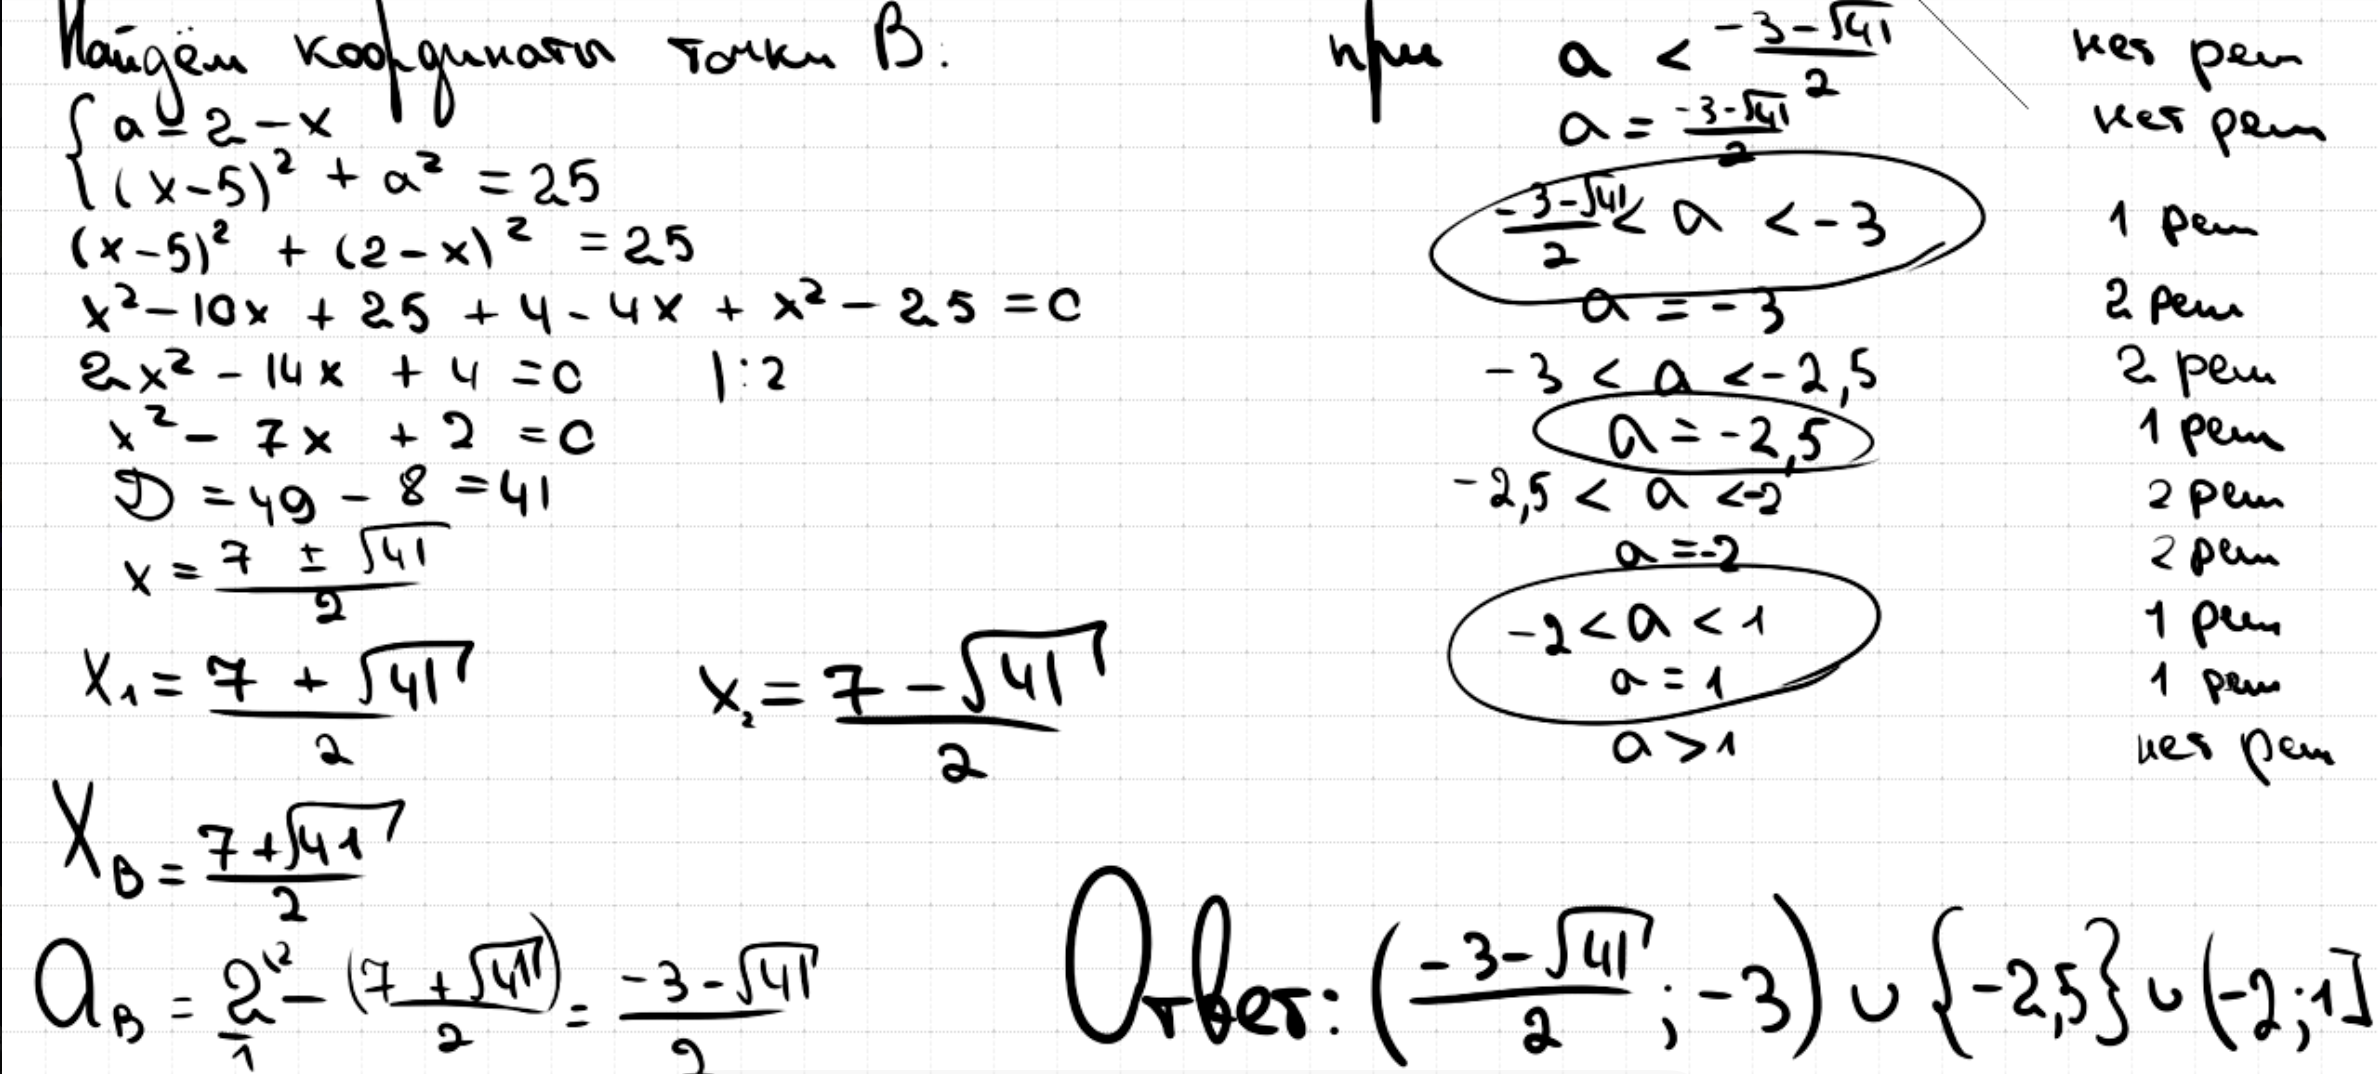 Найдём координаты точки B:
{ a = 2 - x
{ (x-5)² + a² = 25
(x-5)² + (2-x)² = 25
x² - 10x + 25 + 4 - 4x + x² - 25 = 0
2x² - 14x + 4 = 0 |:2
x² - 7x + 2 = 0
D = 49 - 8 = 41
x = (7 ± √41)/2
x₁ = (7 + √41)/2 x₂ = (7 - √41)/2
X_B = (7 + √41)/2
a_B = 2/1 - (7 + √41)/2 = (-3 - √41)/2
при a < (-3-√41)/2 нет реш
a = (-3-√41)/2 нет реш
(-3-√41)/2 < a < -3 1 реш
a = -3 2 реш
-3 < a < -2,5 2 реш
a = -2,5 1 реш
-2,5 < a < -2 2 реш
a = -2 2 реш
-2 < a < 1 1 реш
a = 1 1 реш
a > 1 нет реш
Ответ: ((-3-√41)/2; -3) ∪ {-2,5} ∪ (-2; 1]